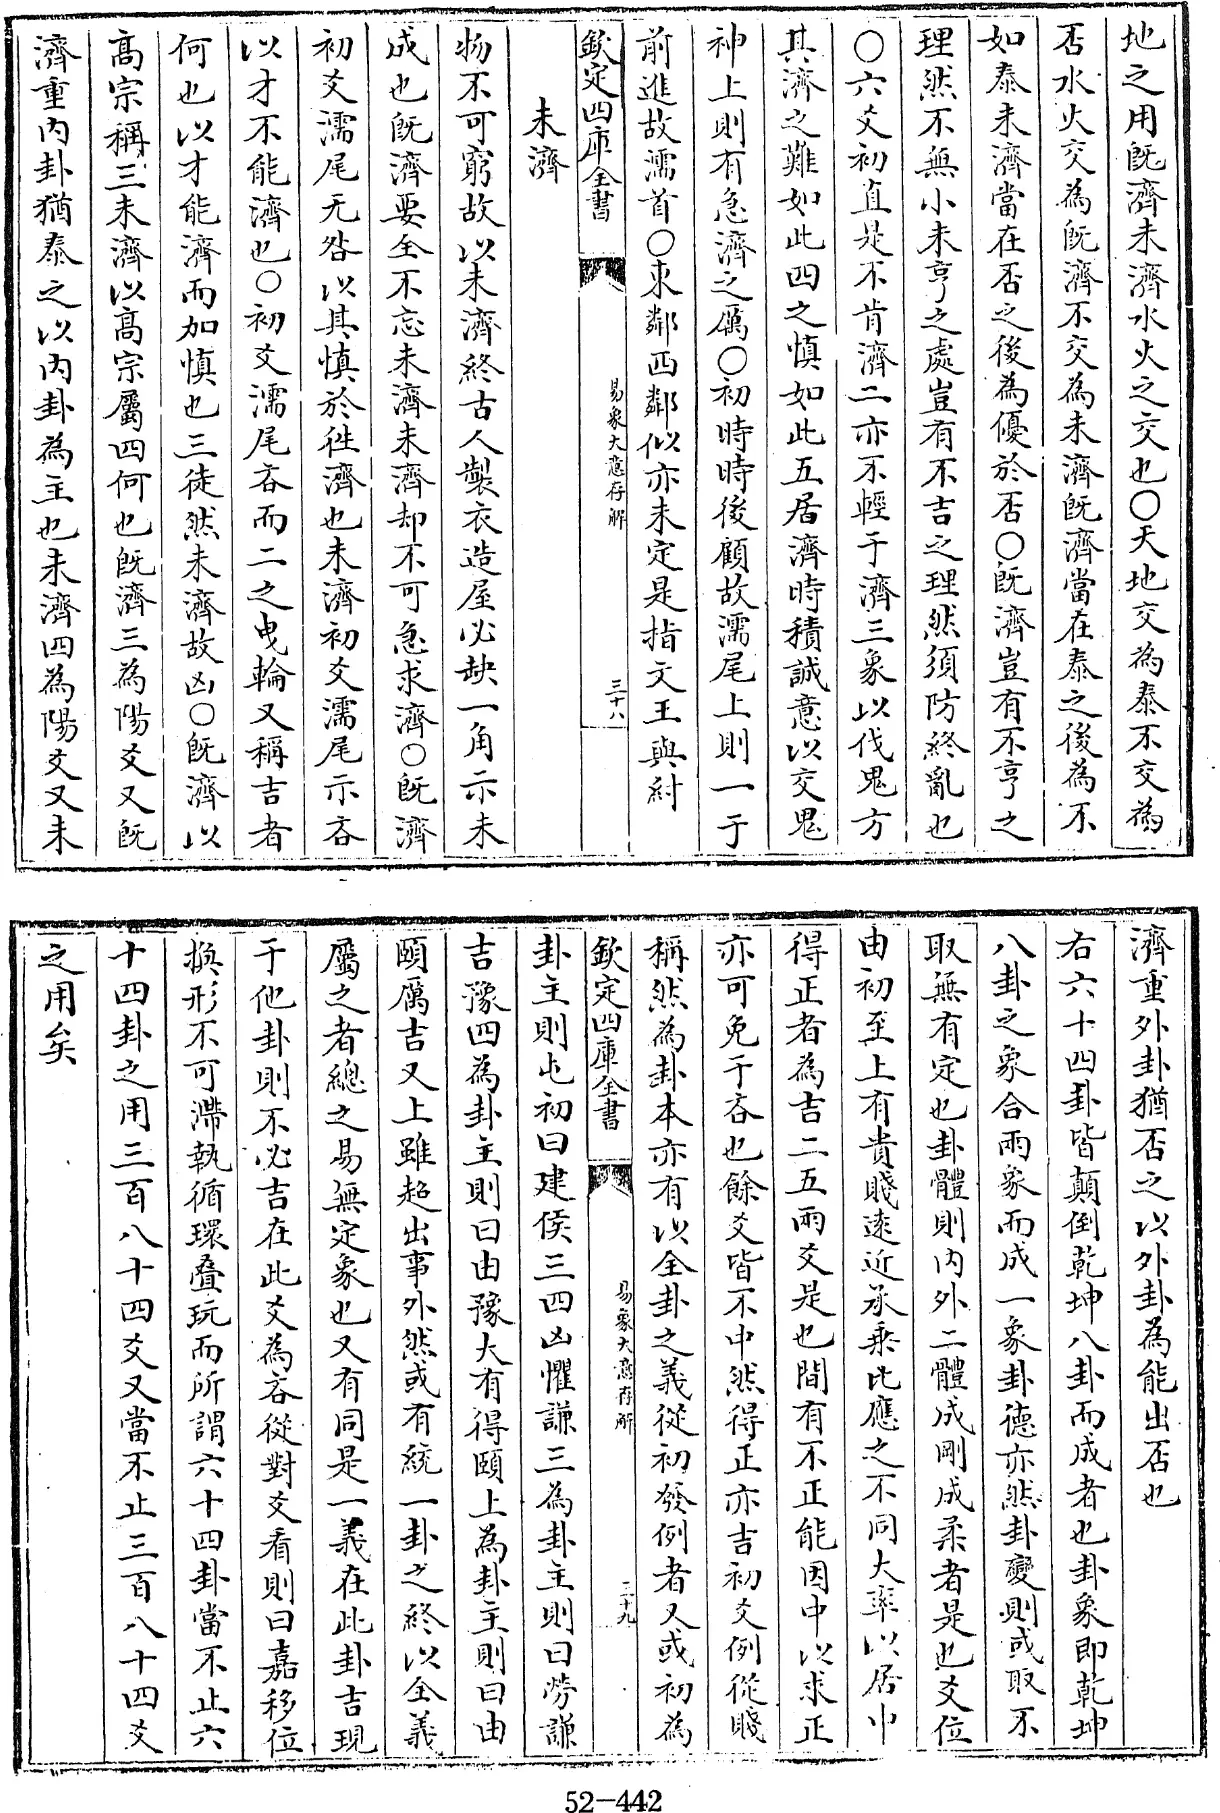 地之用旣濟未濟水火之交也〇天地交為泰不交為
否水火交為旣濟不交為未濟旣濟當在泰之後為不
如泰未濟當在否之後為優於否〇旣濟豈有不亨之
理然不無小未亨之處豈有不吉之理然須防終亂也
〇六爻初直是不肯濟二亦不輕于濟三象以伐鬼方
其濟之難如此四之慎如此五居濟時積誠意以交鬼
神上則有急濟之厲〇初時時後顧故濡尾上則一于
前進故濡首〇東鄰西鄰似亦未定是指文王與紂
欽定四庫全書
易象大意存解
三十八
未濟
物不可窮故以未濟終古人製衣造屋必缺一角示未
成也旣濟要全不忘未濟未濟却不可急求濟〇旣濟
初爻濡尾无咎以其慎於徃濟也未濟初爻濡尾示吝
以才不能濟也〇初爻濡尾吝而二之曳輪又稱吉者
何也以才能濟而加慎也三徒然未濟故凶〇旣濟以
髙宗稱三未濟以髙宗屬四何也旣濟三為陽爻又旣
濟重内卦猶泰之以内卦為主也未濟四為陽爻又未
濟重外卦猶否之以外卦為能出否也
右六十四卦皆顛倒乾坤八卦而成者也卦象即乾坤
八卦之象合兩象而成一象卦德亦然卦變則或取不
取無有定也卦體則内外二體成剛成柔者是也爻位
由初至上有貴賤遠近承乗比應之不同大率以居中
得正者為吉二五兩爻是也間有不正能因中以求正
亦可免于吝也餘爻皆不中然得正亦吉初爻例從賤
稱然為卦本亦有以全卦之義從初發例者又或初為
欽定四庫全書
易象大意存解
三十九
卦主則屯初曰建侯三四凶懼謙三為卦主則曰勞謙
吉豫四為卦主則曰由豫大有得頤上為卦主則曰由
頤厲吉又上雖超出事外然或有統一卦之終以全義
屬之者總之易無定象也又有同是一義在此卦吉現
于他卦則不必吉在此爻為吝從對爻看則曰嘉移位
換形不可滯執循環疊玩而所謂六十四卦當不止六
十四卦之用三百八十四爻又當不止三百八十四爻
之用矣
52-442